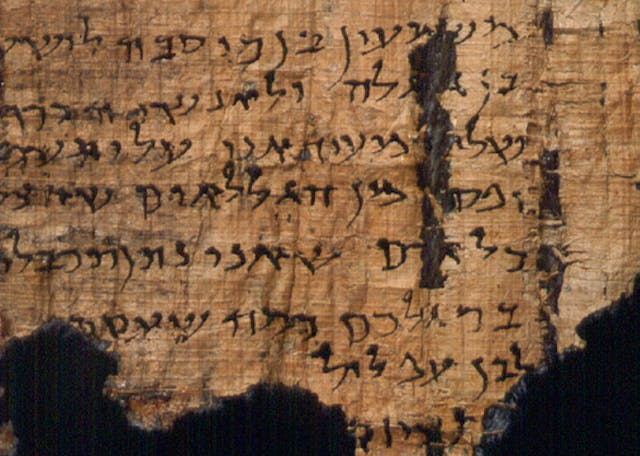 משמעון בן כוסבה לישע
בן גלגלה ולאנשי הכרך
שלום מעיד אני עלי תשמ
מן הגללאים שהצ
כל אדם שאני נתן תכבלי
ברגלכם כמה שעסת
לבן עפלול